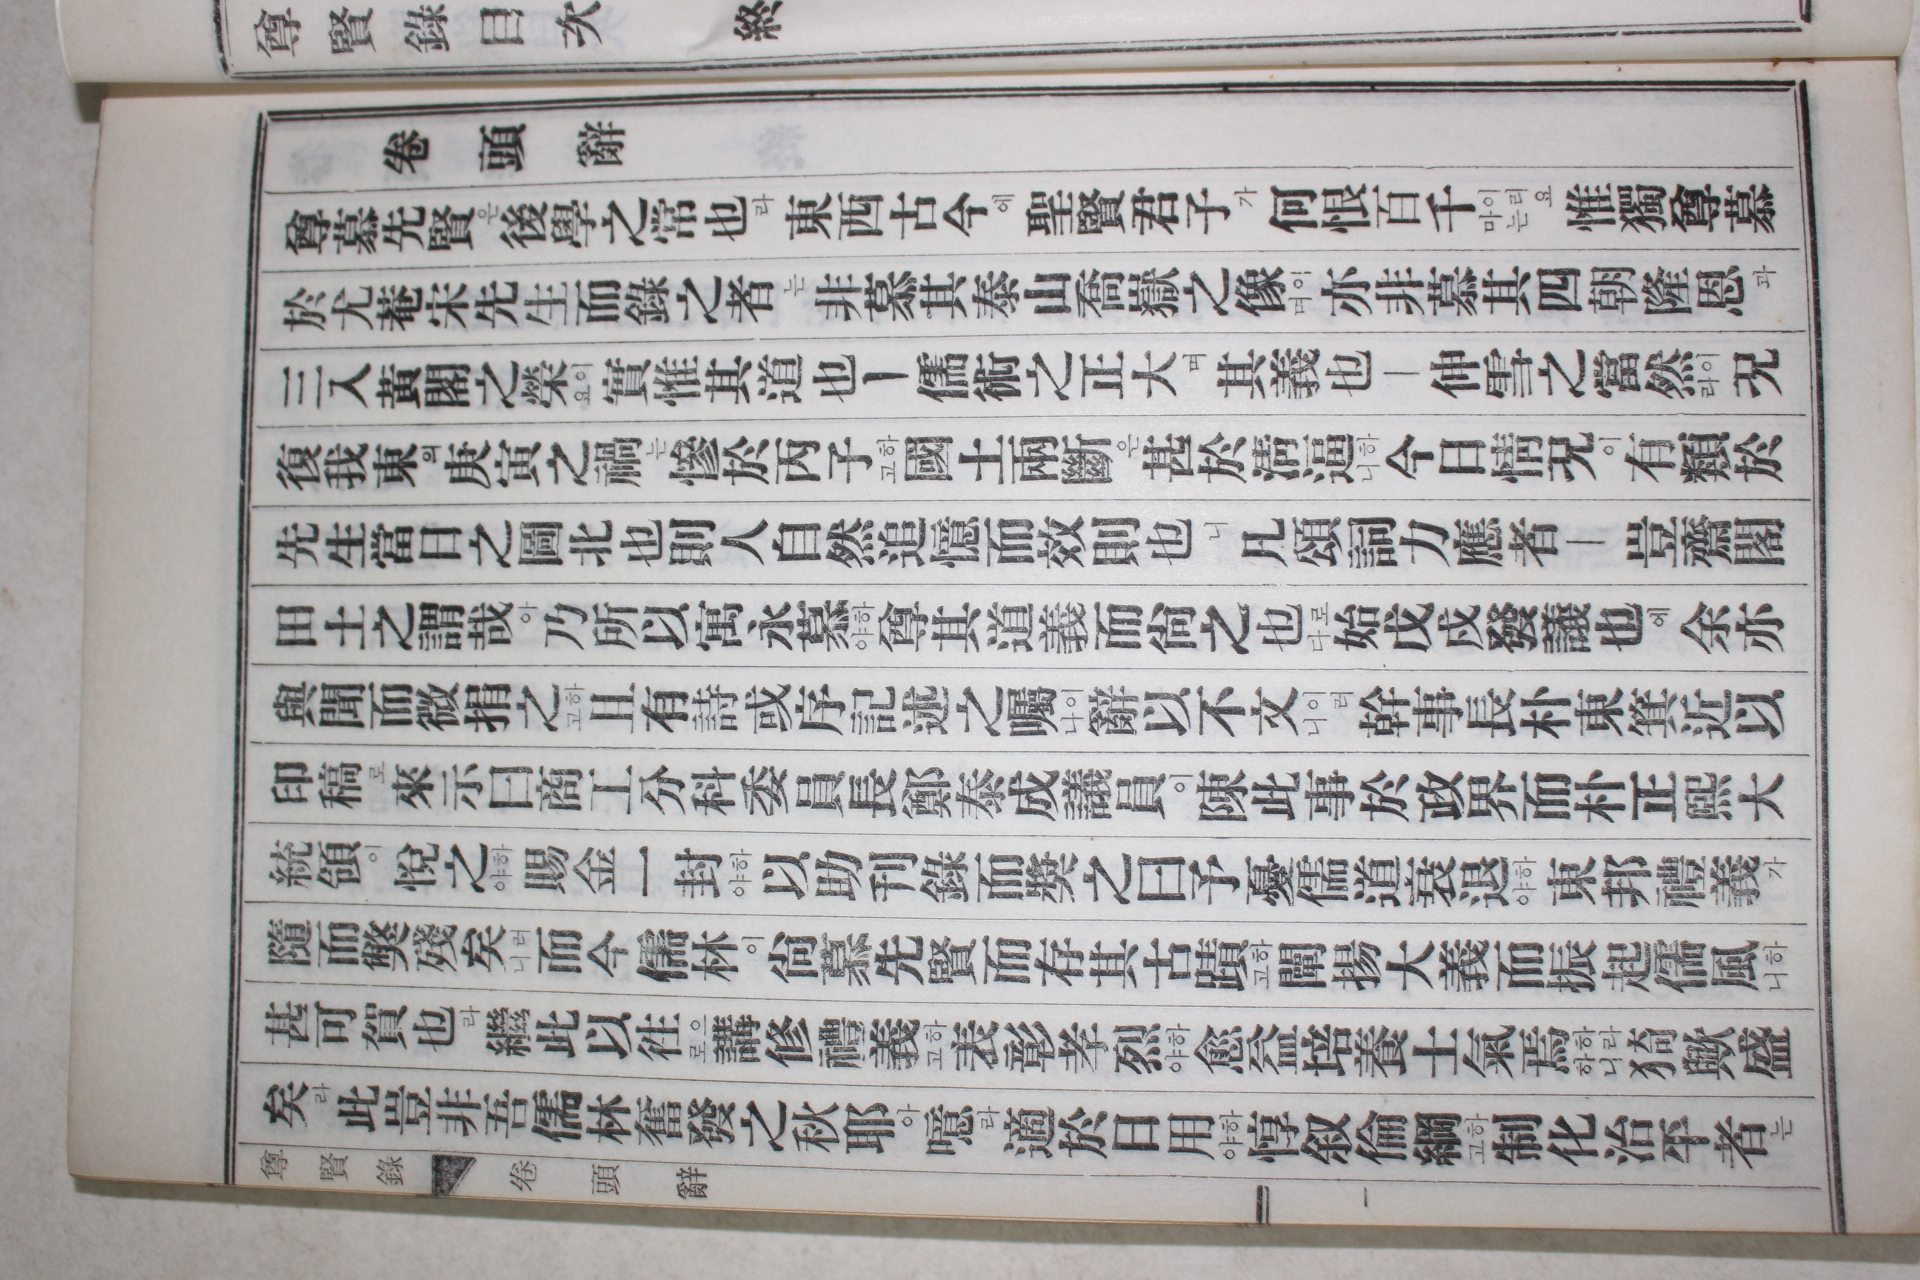 尊賢錄目次 終
卷頭辭
尊慕先賢은後學之常也라東西古今에聖賢君子가何恨百千마이는리요惟獨尊慕
於尤菴宋先生而錄之者는非慕其泰山喬嶽之像이며亦非慕其四朝隆恩과
三入黃閣之榮이요實惟其道也ㅣ儒術之正大며其義也ㅣ伸雪之當然이라況
復我東의庚寅之禍는慘於丙子하고國土兩斷은甚於淸逼하니今日情況이有類於
先生當日之圖北也則人自然追憶而效則也니凡頌詞力應者ㅣ豈齋閣
田土之謂哉아乃所以寓永慕하야尊其道義而尙之也로다始戊戌發議也에余亦
與聞而微捐之하고且有詩或序記述之囑이나辭以不文이러니幹事長朴東箕近以
印稿로來示曰商工分科委員長鄭泰成議員이陳此事於政界而朴正熙大
統領이悅之하야賜金一封하야以助刊錄而獎之曰予憂儒道衰退하야東邦禮義가
隨而獘殘矣러니而今儒林이尙慕先賢而存其古蹟하고闡揚大義而振起儒風하니
甚可賀也라繼此以往으로講修禮義하고表彰孝烈하야愈益培養士氣焉하라하니猗歟盛
矣라此豈非吾儒林奮發之秋耶아噫라適於日用하야惇叙倫綱하고制化治平者는
尊賢錄 卷頭辭 一